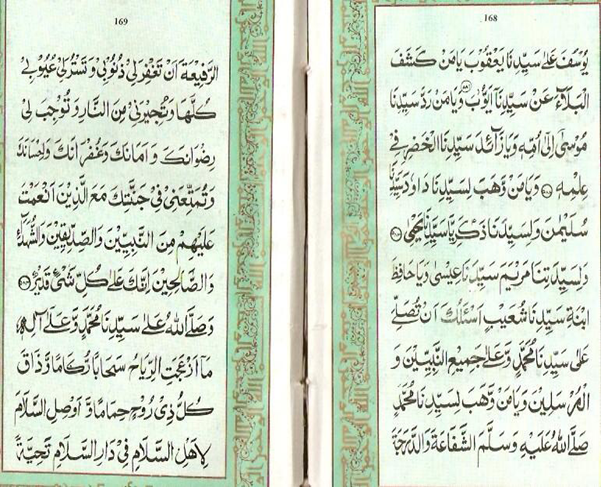 168
يُوْسُفَ عَلٰى سَيِّدِنَا يَعْقُوْبَ يَامَنْ كَشَفَ
الْبَلَآءَ عَنْ سَيِّدِنَآ اَيُّوْبَ وَيَامَنْ رَدَّ سَيِّدَنَا
مُوْسٰى اِلٰى اُمِّهٖ وَيَا زَآئِدَ سَيِّدِنَا الْخَضِرِ فِيْ
عِلْمِهٖ وَيَامَنْ وَّهَبَ لِسَيِّدِنَا دَاوٗدَ سَيِّدَنَا
سُلَيْمٰنَ وَلِسَيِّدِنَا زَكَرِيَّا سَيِّدَنَا يَحْيٰى
وَلِسَيِّدَتِنَا مَرْيَمَ سَيِّدَنَا عِيْسٰى وَيَاحَافِظَ
ابْنَةِ سَيِّدِنَا شُعَيْبٍ اَسْئَلُكَ اَنْ تُصَلِّيَ
عَلٰى سَيِّدِنَا مُحَمَّدٍ وَّعَلٰى جَمِيْعِ النَّبِيّٖنَ وَ
الْمُرْسَلِيْنَ وَيَامَنْ وَّهَبَ لِسَيِّدِنَا مُحَمَّدٍ
صَلَّى اللهُ عَلَيْهِ وَسَلَّمَ الشَّفَاعَةَ وَالدَّرَجَةَ
169
الرَّفِيْعَةَ اَنْ تَغْفِرَلِيْ ذُنُوْبِيْ وَتَسْتُرَلِيْ عُيُوْبِيْ
كُلَّهَا وَتُجِيْرَنِيْ مِنَ النَّارِ وَتُوْجِبَ لِيْ
رِضْوَانَكَ وَاَمَانَكَ وَغُفْرَانَكَ وَاِحْسَانَكَ
وَتُمَتِّعَنِيْ فِيْ جَنَّتِكَ مَعَ الَّذِيْنَ اَنْعَمْتَ
عَلَيْهِمْ مِنَ النَّبِيِّيْنَ وَالصِّدِّيْقِيْنَ وَالشُّهَدَآءِ
وَالصَّالِحِيْنَ اِنَّكَ عَلٰى كُلِّ شَيْءٍ قَدِيْرٌ
وَصَلَّى اللهُ عَلٰى سَيِّدِنَا مُحَمَّدٍ وَّعَلٰى اٰلِهٖ
مَآ اَزْعَجَتِ الرِّيَاحُ سَحَابًا رُّكَامًا وَّذَاقَ
كُلُّ ذِيْ رُوْحٍ حِمَامًا وَّاَوْصِلِ السَّلَامَ
لِاَهْلِ السَّلَامِ فِيْ دَارِ السَّلَامِ تَحِيَّةً